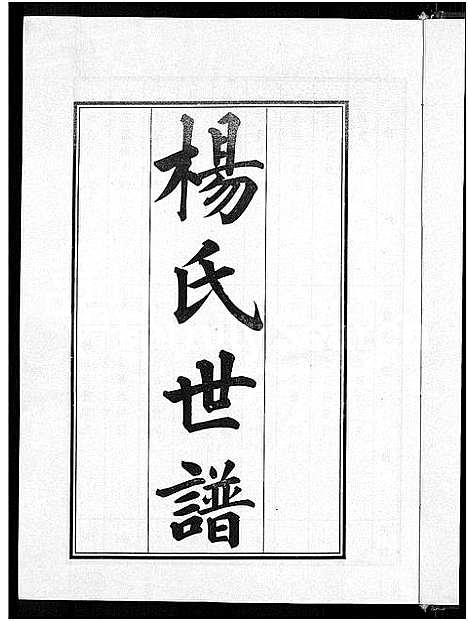 楊氏世譜